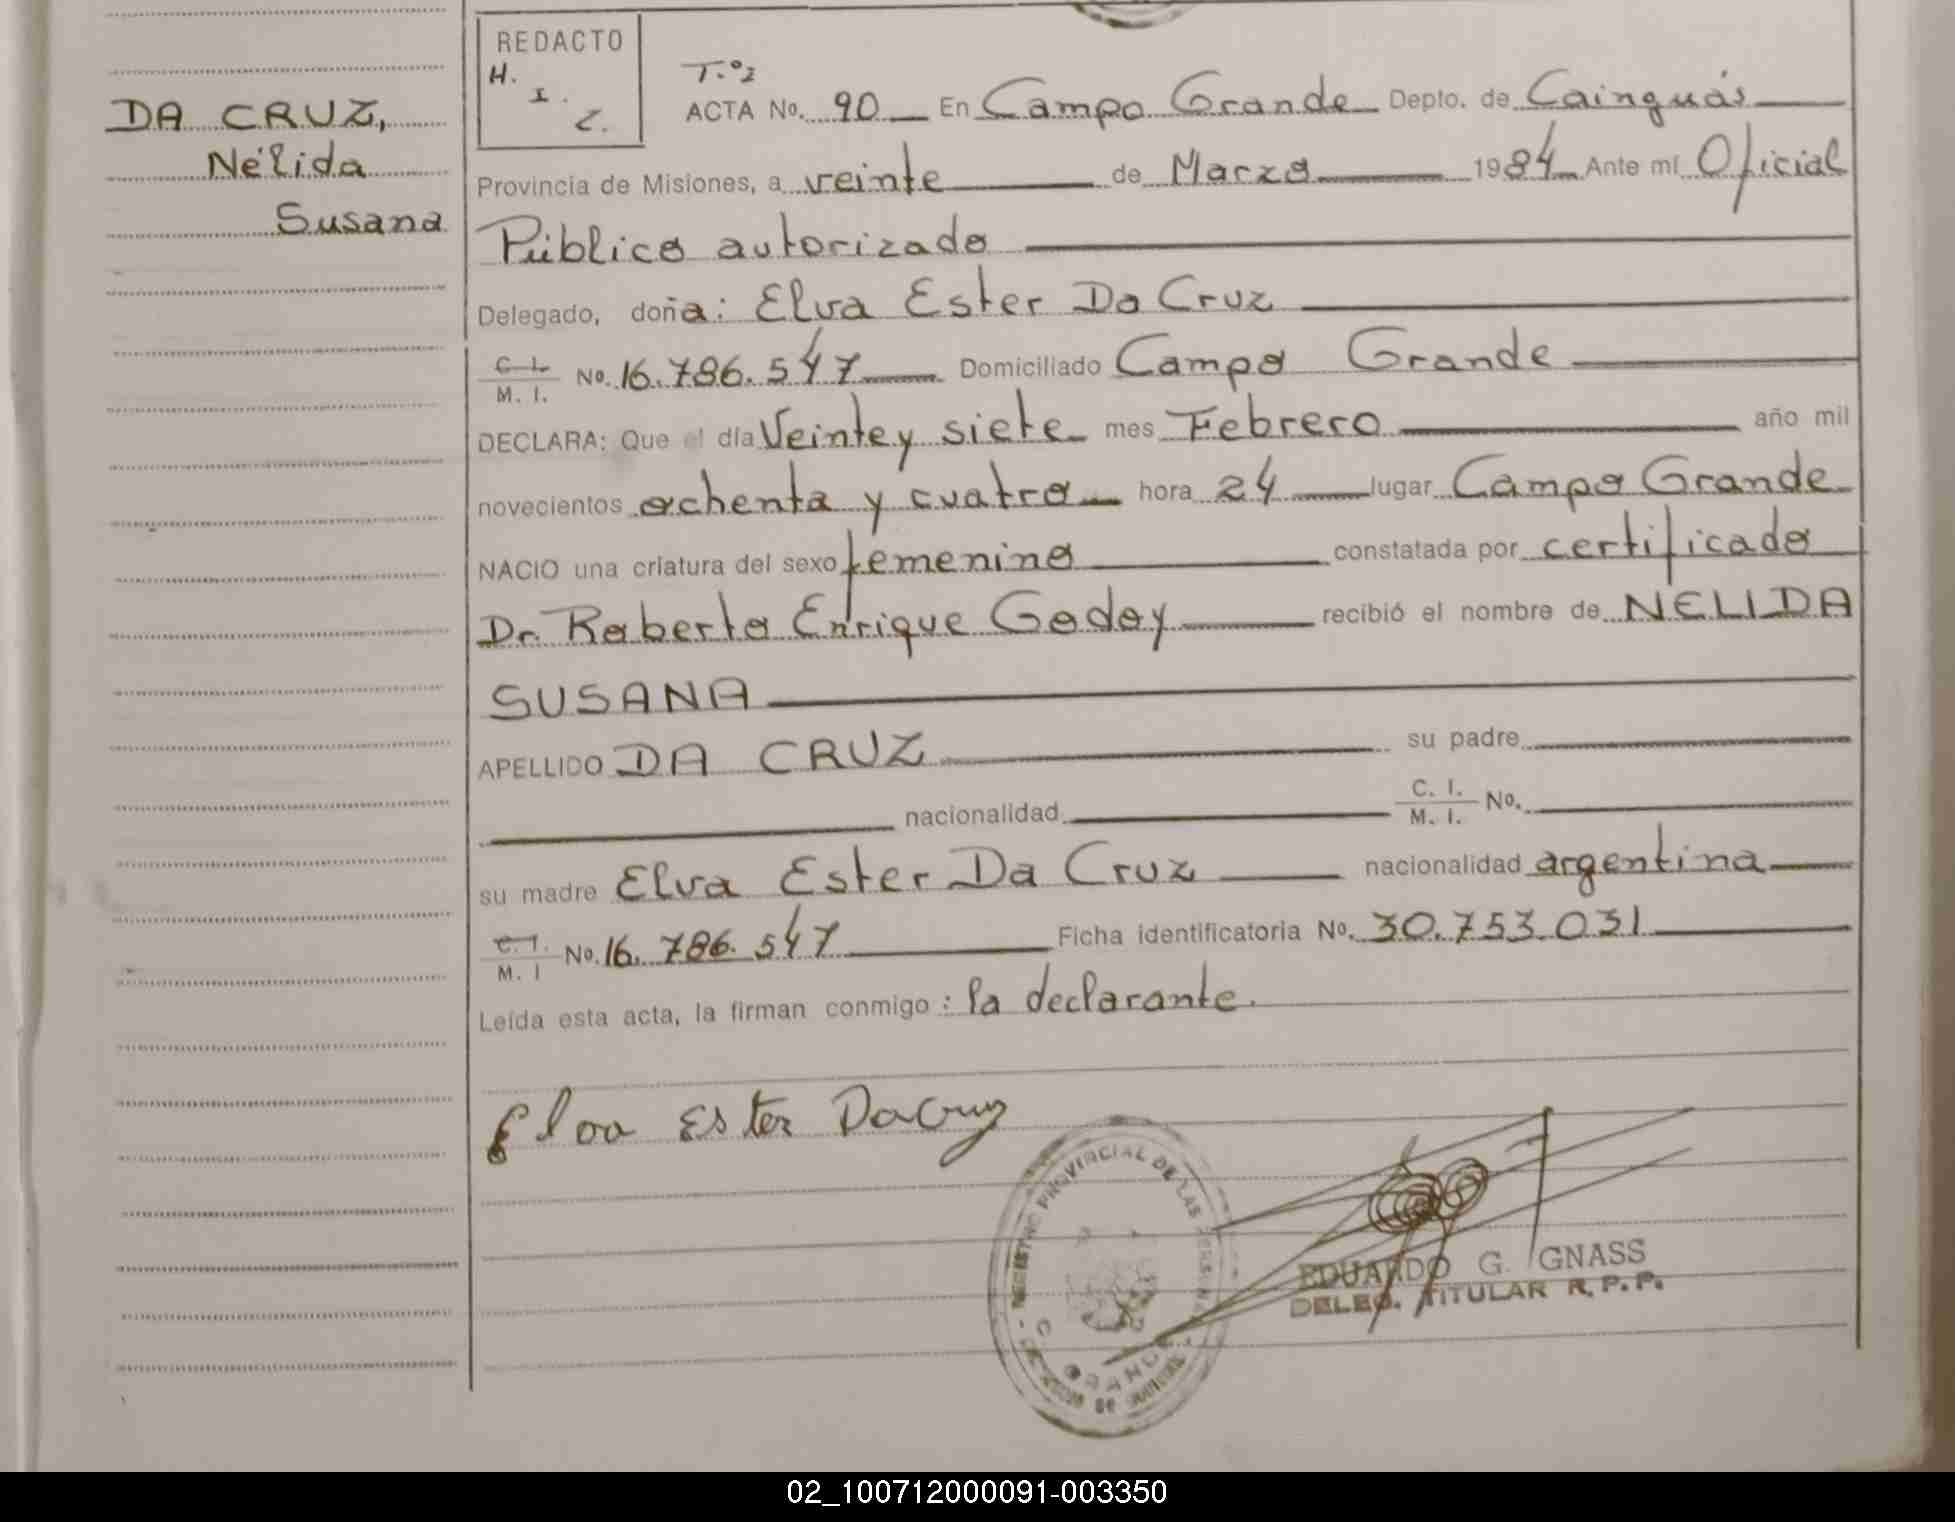 DA CRUZ,
Nélida
Susana
REDACTO
H.
I.
Z.
T.º 2
ACTA No. 90 En Campo Grande Depto. de Cainguás
Provincia de Misiones, a veinte de Marzo 1984 Ante mí Oficial
Público autorizado
Delegado, doña: Elva Ester Da Cruz
C. I. M. I. No. 16.786.547 Domiciliado Campo Grande
DECLARA: Que el día Veinte y siete mes Febrero año mil
novecientos ochenta y cuatro hora 24 lugar Campo Grande
NACIO una criatura del sexo femenino constatada por certificado
Dr. Roberto Enrique Godoy recibió el nombre de NELIDA
SUSANA
APELLIDO DA CRUZ su padre
nacionalidad C. I. M. I. No.
su madre Elva Ester Da Cruz nacionalidad argentina
C. I. M. I No. 16.786.547 Ficha identificatoria No. 30.753.031
Leída esta acta, la firman conmigo: la declarante.
Elva Ester DaCruz
REGISTRO PROVINCIAL DE LAS
GRANDE
EDUARDO G. GNASS
DELEG. TITULAR R.P.P.
02_100712000091-003350